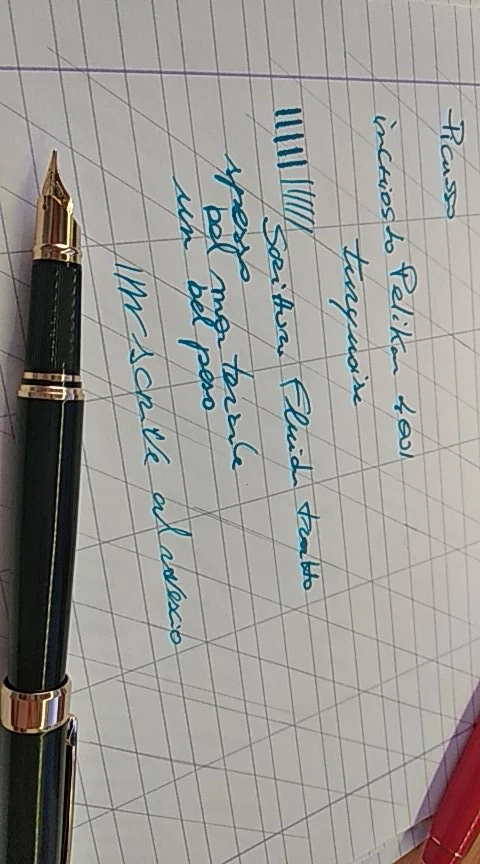 Picasso
inchiostro Pelikan 4001
turquoise
Scrittura Fluida tratto
spesso
bel materiale
un bel peso
scrive al rovescio